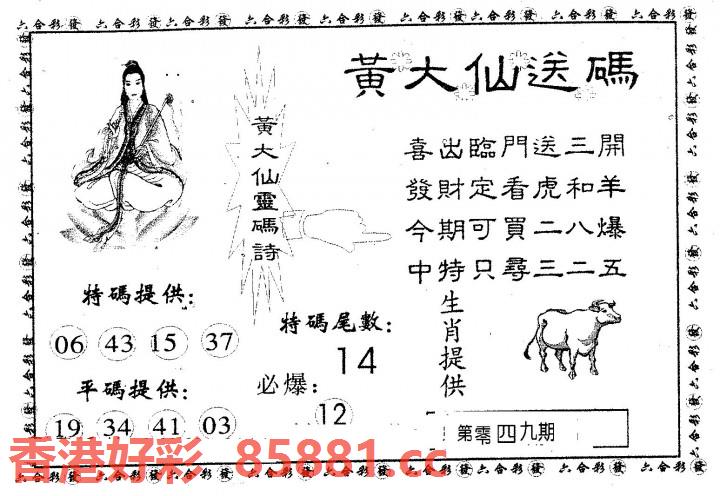 六合彩發 六合彩發 六合彩發 六合彩發 六合彩發 六合彩發 六合彩發 六合彩發
黃大仙送碼
黃大仙靈碼詩
喜出臨門送三開
發財定看虎和羊
今期可買二八爆
中特只尋三二五
特碼提供：
06 43 15 37
平碼提供：
19 34 41 03
特碼尾數：
14
必爆：
12
生肖提供
第零四九期
香港好彩 85881.cc